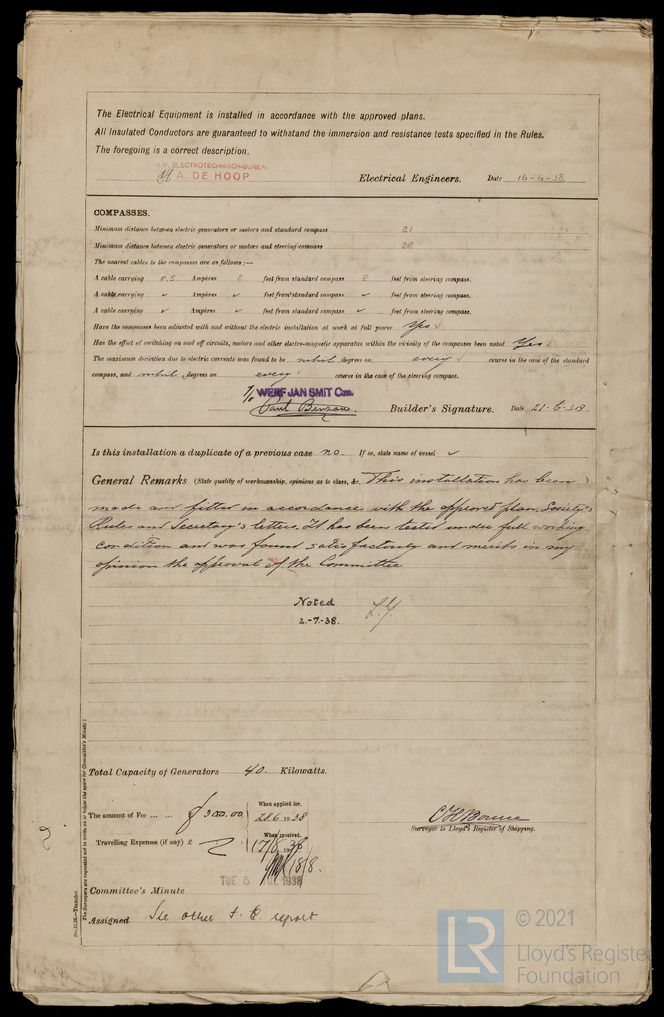 The Electrical Equipment is installed in accordance with the approved plans.
All Insulated Conductors are guaranteed to withstand the immersion and resistance tests specified in the Rules.
The foregoing is a correct description.
N.V. ELECTROTECHNISCH-BUREAU
A. DE HOOP. Electrical Engineers. Date 16-6-38.
COMPASSES.
Minimum distance between electric generators or motors and standard compass 21
Minimum distance between electric generators or motors and steering compass 22
The nearest cables to the compasses are as follows:—
A cable carrying 0,5 Ampères 2 feet from standard compass 2 feet from steering compass.
A cable carrying ✓ Ampères ✓ feet from standard compass ✓ feet from steering compass.
A cable carrying ✓ Ampères ✓ feet from standard compass ✓ feet from steering compass.
Have the compasses been adjusted with and without the electric installation at work at full power Yes ✓
Has the effect of switching on and off circuits, motors and other electro-magnetic apparatus within the vicinity of the compasses been noted Yes
The maximum deviation due to electric currents was found to be nihil degrees on every ✓ course in the case of the standard
compass, and nihil degrees on every course in the case of the steering compass.
WERF JAN SMIT Czn.
Builder's Signature. Date 21-6-38.
Is this installation a duplicate of a previous case no. If so, state name of vessel ✓
General Remarks (State quality of workmanship, opinions as to class, &c. This installation has been
made and fitted in accordance with the approved plan, Society's
Rules and Secretary's letters. It has been tested under full working
condition and was found satisfactorily and merits in my
opinion the approval of the Committee
Noted
2.-7.-38.
Total Capacity of Generators 40. Kilowatts.
The amount of Fee ... ... ƒ 300.00 When applied for, 21.6.1938
Travelling Expenses (if any) £ When received, 17/8 1938
18/8.
Surveyor to Lloyd's Register of Shipping.
TUE 5 JUL 1938
Committee's Minute
Assigned See other F. E. report
© 2021
Lloyd's Register
Foundation
LR